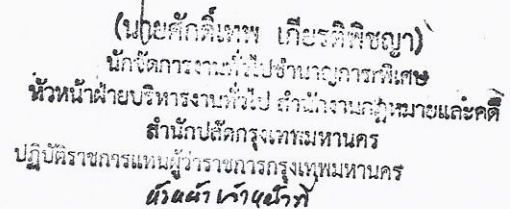 (นายศักดิ์เทพ เกียรติพิชญา)
นักจัดการงานทั่วไปชำนาญการพิเศษ
หัวหน้าฝ่ายบริหารงานทั่วไป สำนักงานกฎหมายและคดี
สำนักปลัดกรุงเทพมหานคร
ปฏิบัติราชการแทนผู้ว่าราชการกรุงเทพมหานคร
หัวหน้าเจ้าหน้าที่